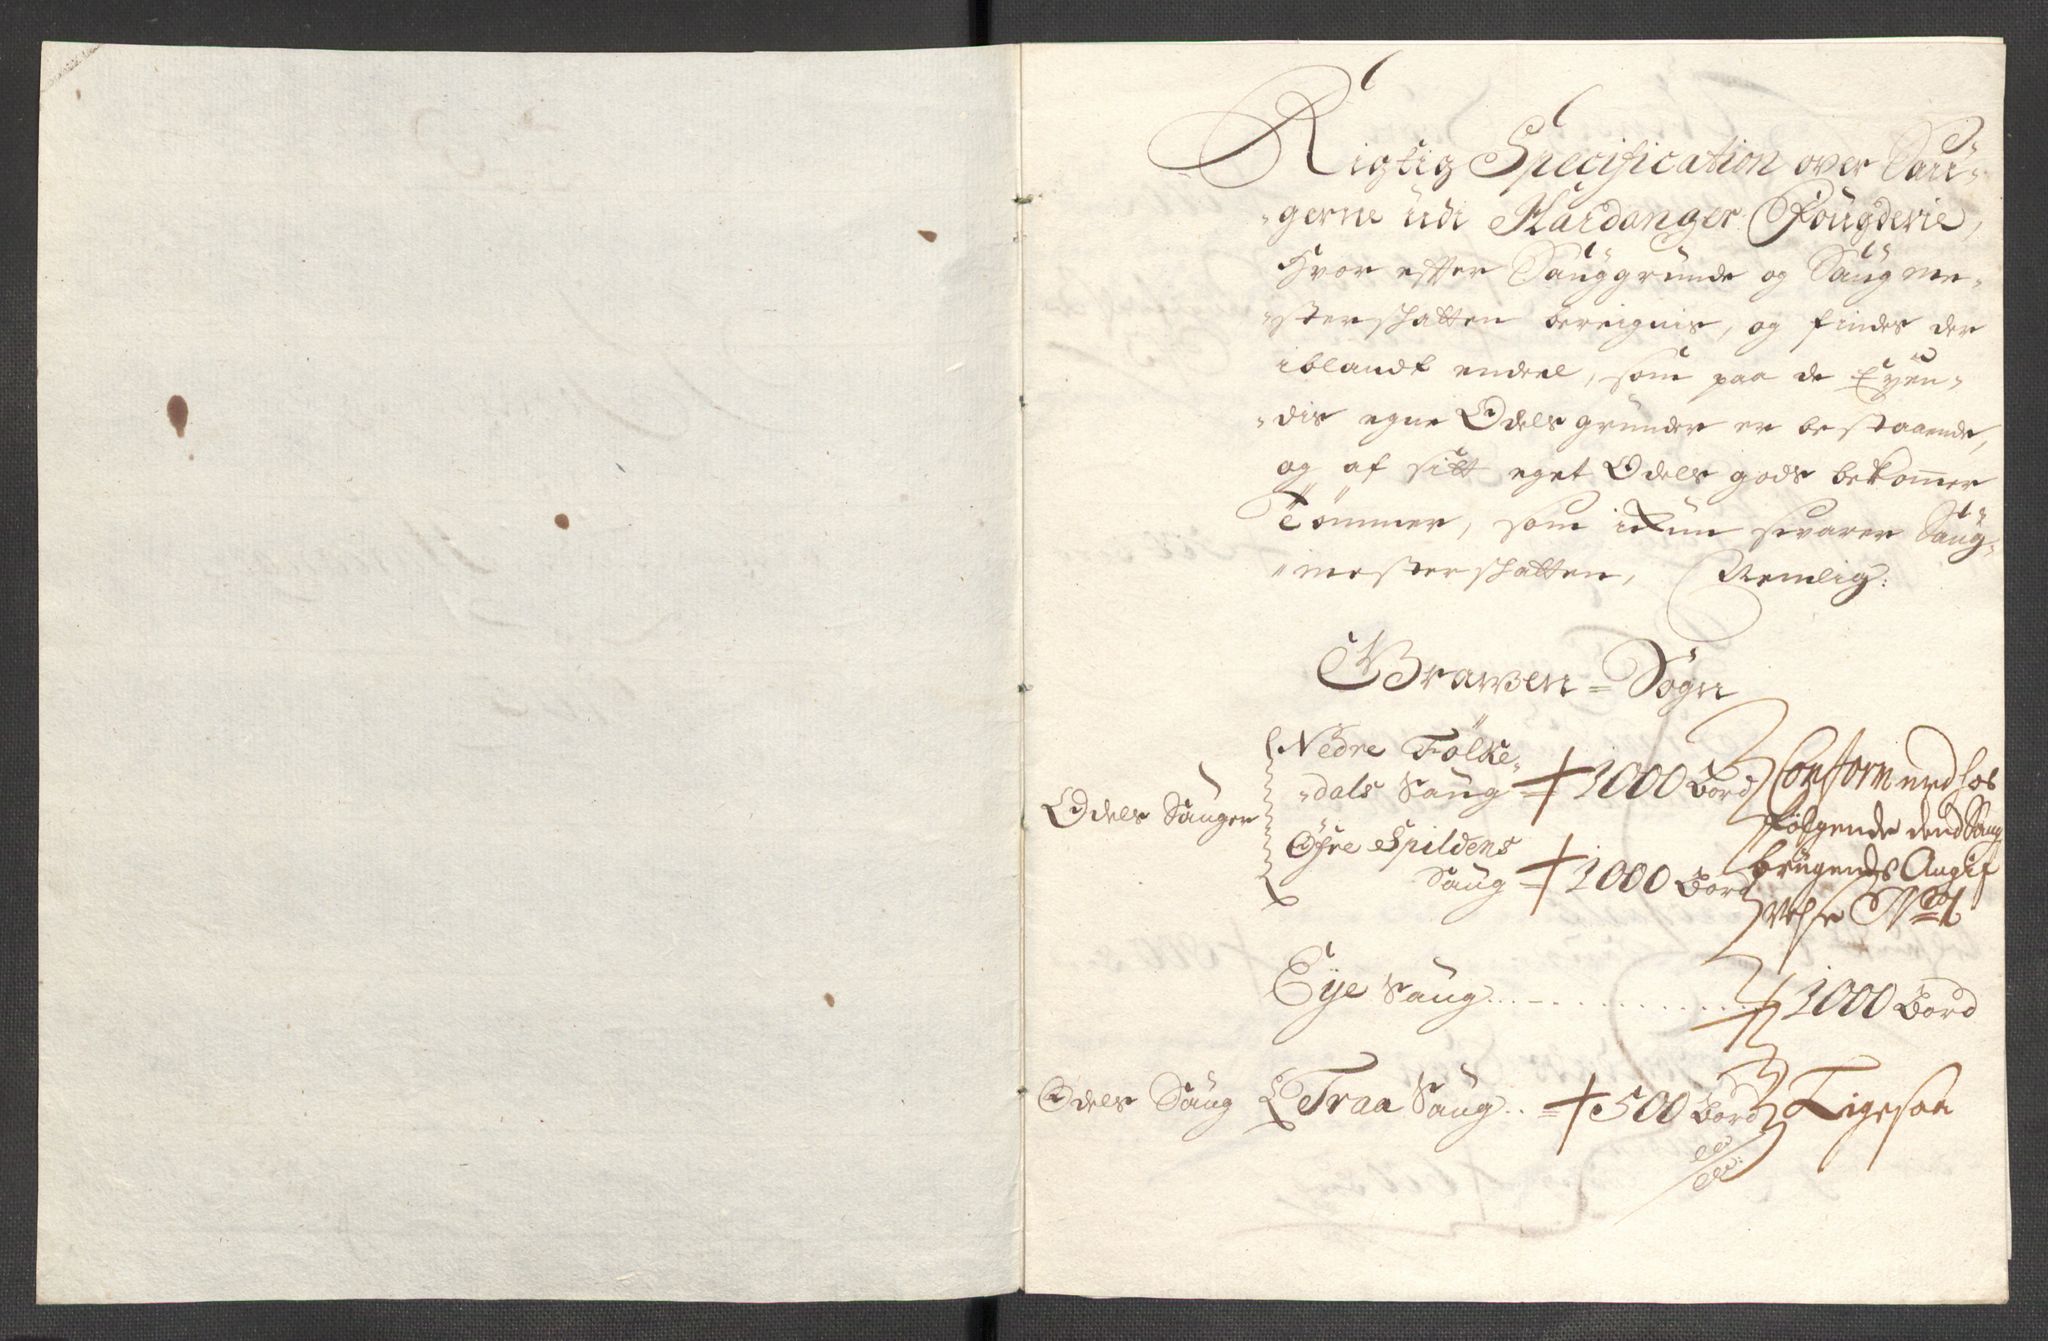 Rigtig Specification over Sau-
gerne udi Hardanger Fougderie,
Hvor effter Sauggrunde og Saug me-
sterschatten bereignis, og findes der
iblandt endeel, som paa de
egne Odels grunder er bestaaende,
og af sitt eget Odels gods bekommer
Tømmer, som ickun svarer Saug-
mesterschatten, Nemlig:
Grawen = Sogn
Odels Sauger
Nedre Folke-
dals Saug = 1000 Bord
Øfre Spildens
Saug = 1000 Bord
Conform ved hos
følgende dend Saug
brugendes Angif
velse No 1
Eye Saug 1000 Bord
Odels Saug Traa Saug = 500 Bord Ligesaa